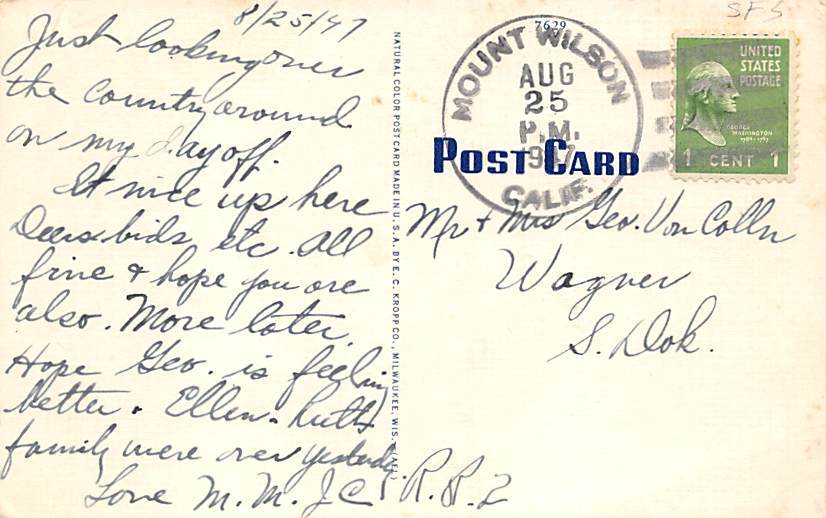 8/25/47
Just looking over
the country around
on my day off.
It nice up here
Deers bids etc. All
fine & hope you are
also. More later.
Hope Geo. is feeling
better. Ellen
family were over yesterday.
Love M. M. J C
R. R. 2
NATURAL COLOR POST CARD MADE IN U. S. A. BY E. C. KROPP CO., MILWAUKEE, WIS.
7629
MOUNT WILSON
AUG
25
P.M.
1947
CALIF.
POST CARD
SFS
UNITED
STATES
POSTAGE
GEORGE
WASHINGTON
1789-1797
1 CENT 1
Mr + Mrs Geo. Von Colln
Wagner
S. Dak.